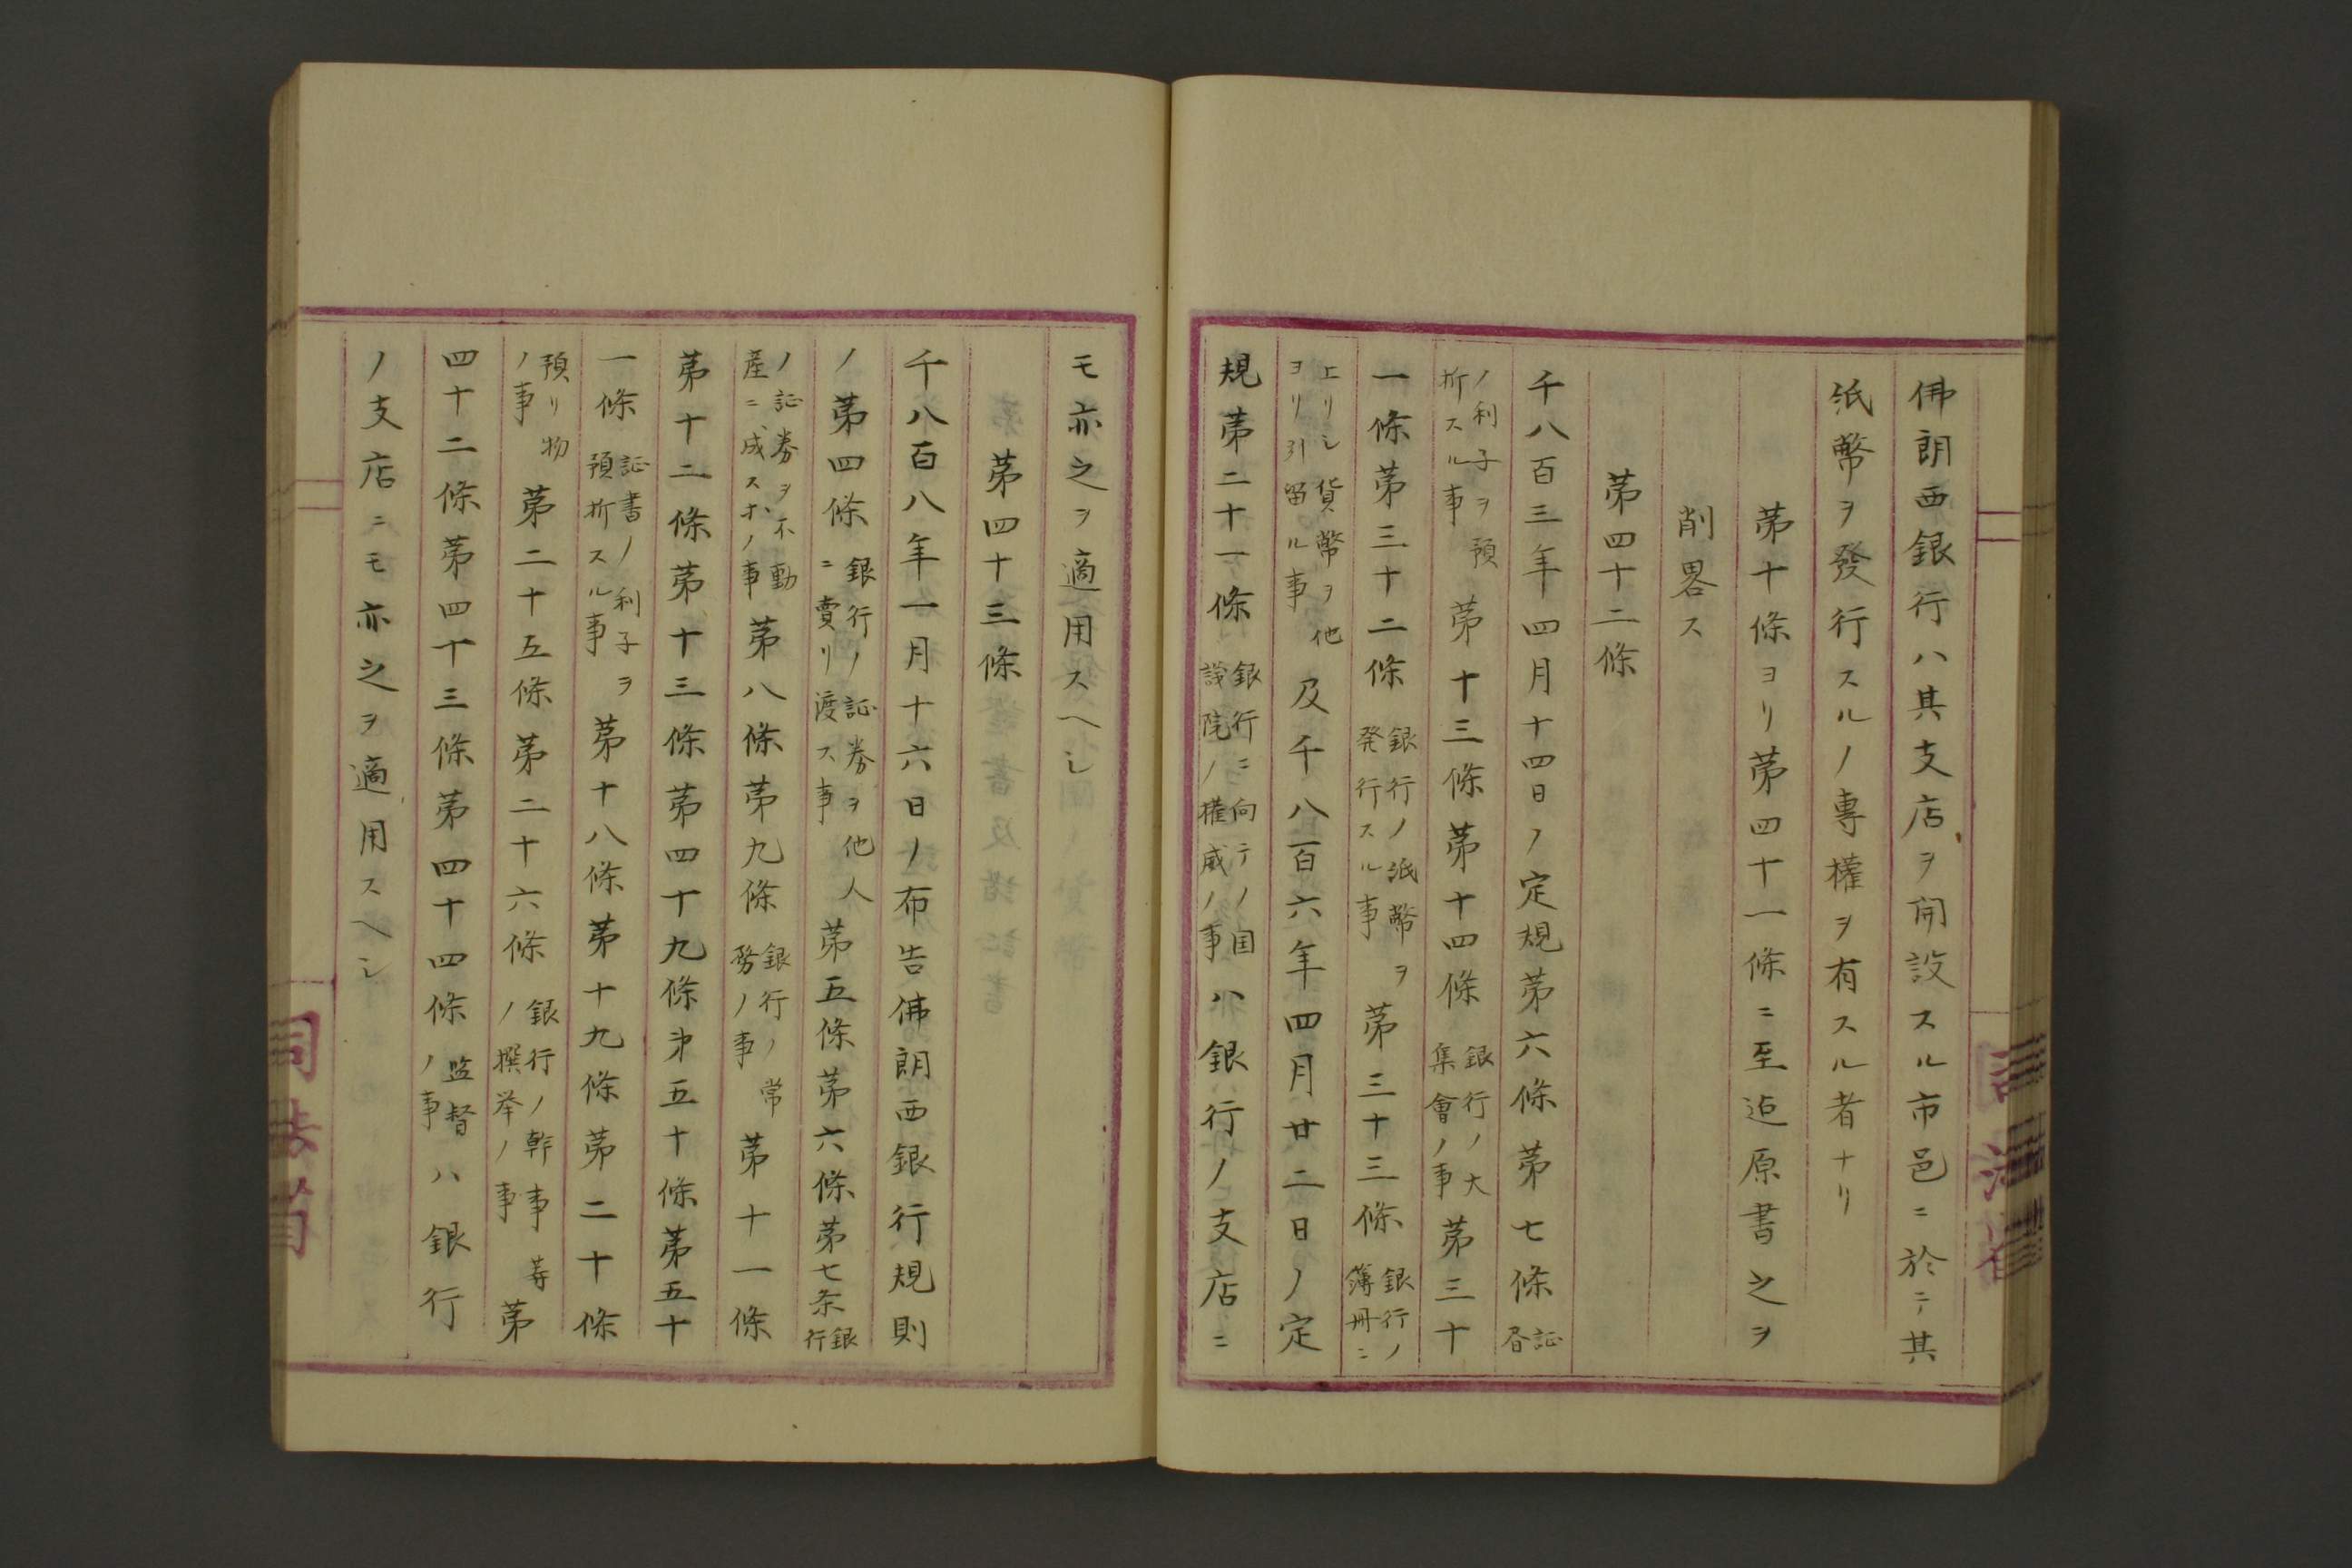 佛朗西銀行ハ其支店ヲ開設スル市邑ニ於テ其
紙幣ヲ發行スルノ專權ヲ有スル者ナリ
第十條ヨリ第四十一條ニ至迠原書之ヲ
削畧ス
第四十二條
千八百三年四月十四日ノ定規第六條第七條証畨
ノ利子ヲ預折スル事第十三條第十四條銀行ノ大集會ノ事第三十
一條第三十二條銀行ノ紙幣ヲ発行スル事第三十三條銀行ノ簿冊ニ
上リシ貨幣ヲ他ヨリ引留ル事及千八百六年四月廿二日ノ定
規第二十一條銀行ニ向テノ国議院ノ權威ノ事ハ銀行ノ支店ニ
モ亦之ヲ適用スヘシ
第四十三條
千八百八年一月十六日ノ布告佛朗西銀行規則
ノ第四條銀行ノ証券ヲ他人ニ賣リ渡ス事第五條第六條第七条銀行
ノ証券ヲ不動産ニ成スホノ事第八條第九條銀行ノ常務ノ事第十一條
第十二條第十三條第四十九條第五十條第五十
一條証書ノ利子ヲ預折スル事第十八條第十九條第二十條
預リ物ノ事第二十五條第二十六條銀行ノ幹事等ノ撰挙ノ事第
四十二條第四十三條第四十四條監督ノ事ハ銀行
ノ支店ニモ亦之ヲ適用スヘシ
司法省